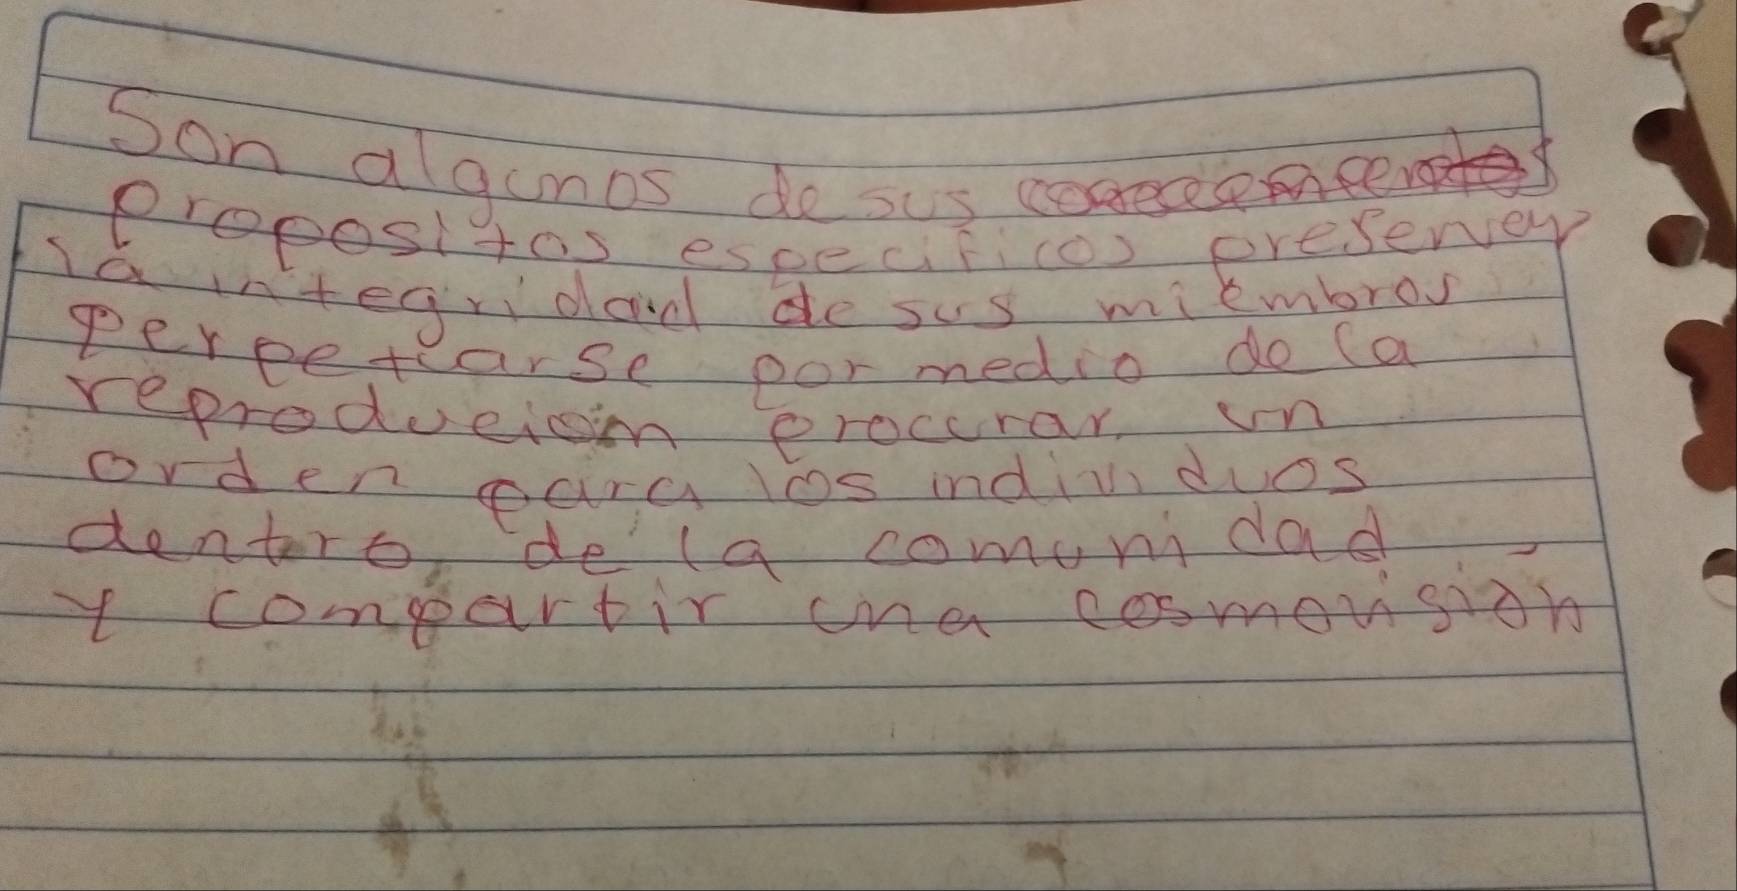 Son algunos de sus
propositos especificos preservey
la integridad de sus miembros
perpetuarse por medio de la
reprodución procurar un
orden para los individuos
dentro de la comunidad
y compartir una cosmovisión